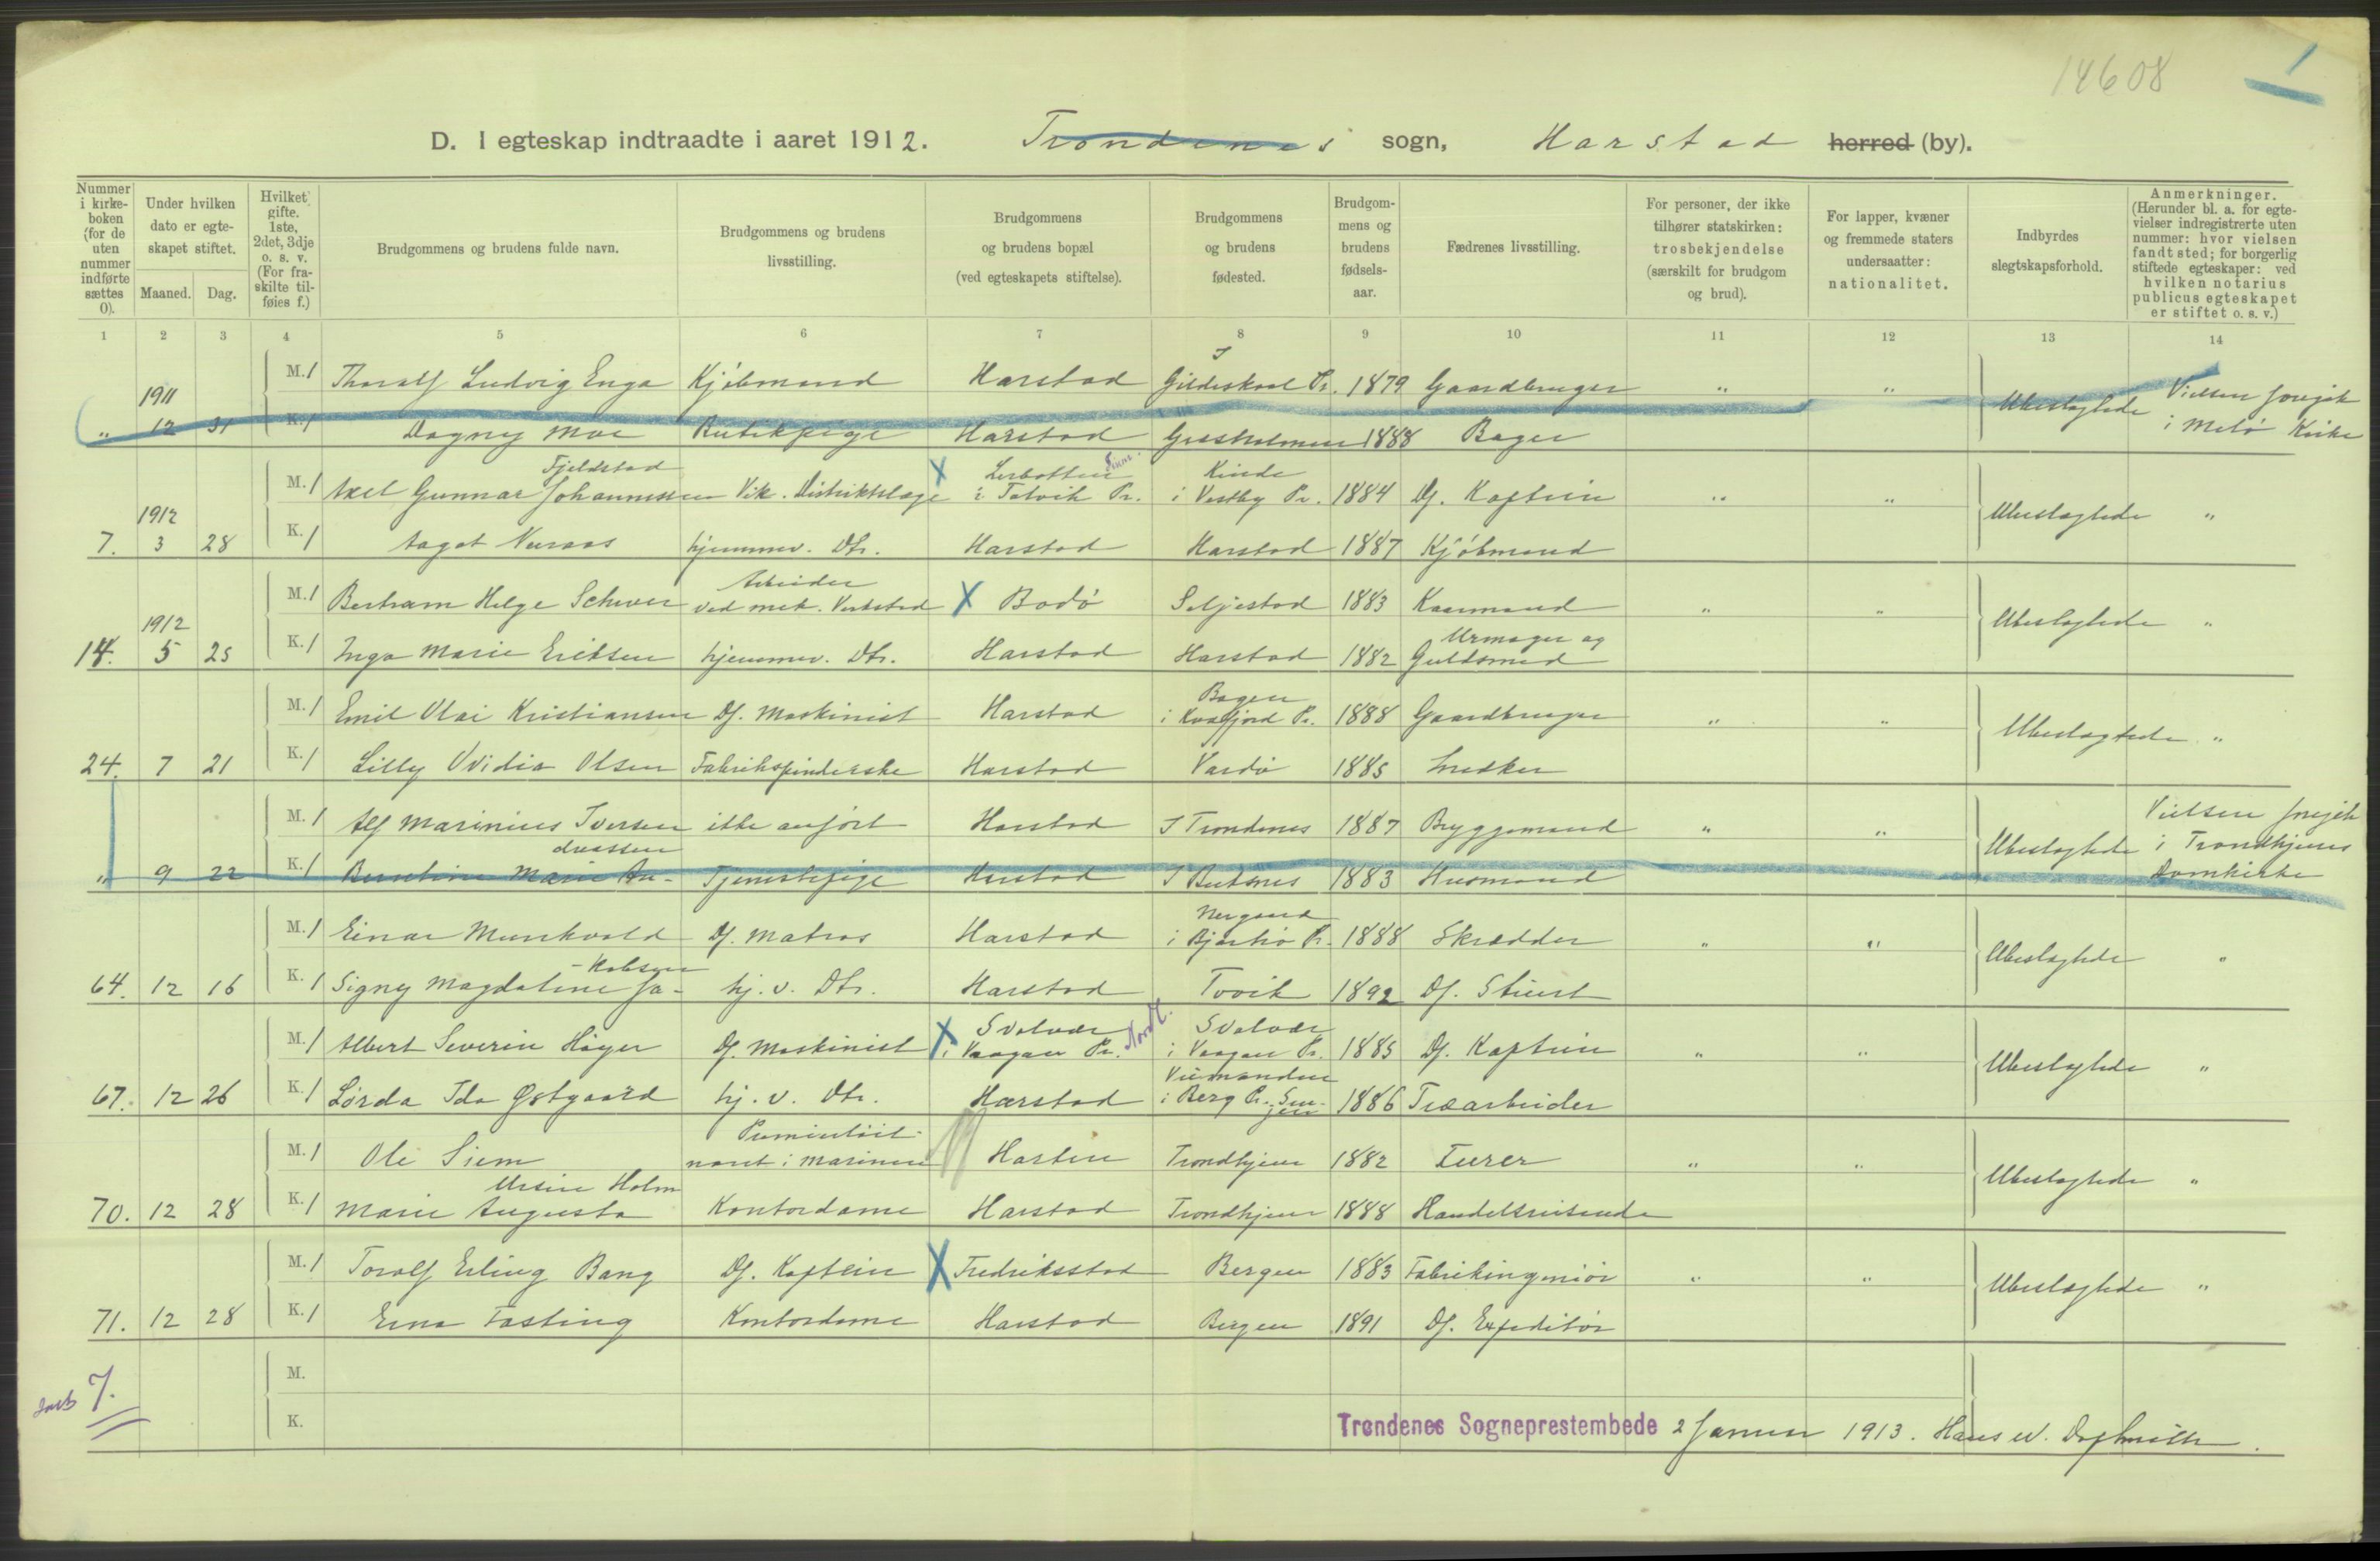 14608
1
D. I egteskap indtraadte i aaret 1912. Trondenes sogn, Harstad herred (by).
Nummer i kirkeboken (for de uten nummer indførte sættes 0).
Under hvilken dato er egteskapet stiftet.
Maaned. Dag.
Hvilket gifte. 1ste, 2det, 3dje o. s. v. (For fraskilte tilføies f.)
Brudgommens og brudens fulde navn.
Brudgommens og brudens livsstilling.
Brudgommens og brudens bopæl (ved egteskapets stiftelse).
Brudgommens og brudens fødested.
Brudgommens og brudens fødselsaar.
Fædrenes livsstilling.
For personer, der ikke tilhører statskirken: trosbekjendelse (særskilt for brudgom og brud).
For lapper, kvæner og fremmede staters undersaatter: nationalitet.
Indbyrdes slegtskapsforhold.
Anmerkninger. (Herunder bl. a. for egtevielser indregistrerte uten nummer: hvor vielsen fandt sted; for borgerlig stiftede egteskaper: ved hvilken notarius publicus egteskapet er stiftet o. s. v.)
1 2 3 4 5 6 7 8 9 10 11 12 13 14
M. 1 Thoralf Ludvig Enga Kjøbmand Harstad I Gildeskaal Pr. 1879 Gaardbruger " " Ubeslægtede Vielsen foregik i Melø Kirke
" 1911 12 31 K. 1 Dagny Moe Butikpige Harstad Græsholmen 1888 Bager
M. 1 Axel Gunnar Fjeldstad Johannessen Vik. Distriktslæge X i Talvik Pr. i Vestby Pr. 1884 Df. Kaptein " " Ubeslægtede "
7. 1912 3 28 K. 1 Aagot hjemmev. Dtr. Harstad Harstad 1887 Kjøbmand
M. 1 Bertram Helge Schwer Arbeider ved mek. Verksted X Bodø Seljestad 1883 Kaarmand " " Ubeslægtede "
14. 1912 5 25 K. 1 Inga Marie Eriksen hjemmev. Dtr. Harstad Harstad 1882 Urmager og Guldsmed
M. 1 Emil Olai Kristiansen Df. Maskinist Harstad Bogen i Kvæfjord Pr. 1888 Gaardbruger " " Ubeslægtede "
24. 7 21 K. 1 Lilly Ovidia Olsen Fabrikspinderske Harstad Vardø 1885 Snedker
M. 1 Alf Marinius Iversen ikke anført Harstad I Trondenes 1887 Bryggemand " " Ubeslægtede Vielsen foregik i Trondhjems Domkirke
" 9 22 K. 1 Berntine Marie Andreassen Tjenestepige Harstad I Buksnes 1883 Husmand
M. 1 Einar Munkvold Df. Matros Harstad Nergaard i Bjarkø Pr. 1888 Skrædder " " Ubeslægtede "
64. 12 16 K. 1 Signy Magdalene Jakobsen hj. v. Dtr. Harstad Tovik 1892 Df. Stuert
M. 1 Albert Severin Høyer Df. Maskinist X Svolvær i Vaagan Pr. Nordl. Svolvær i Vaagan Pr. 1885 Df. Kaptein " " Ubeslægtede "
67. 12 26 K. 1 Lørda Ida Østgaard hj. v. Dtr. Harstad i Berg Pr. Senjen 1886 Træarbeider
M. 1 Ole Siem Premierløitnant i Marinen Horten Trondhjem 1882 Furer " " Ubeslægtede "
70. 12 28 K. 1 Marie Augusta Ursin Holm Kontordame Harstad Trondhjem 1888 Handelsreisende
M. 1 Toralf Erling Bang Df. Kaptein X Fredriksstad Bergen 1883 Fabrikingeniør " " Ubeslægtede "
71. 12 28 K. 1 Erna Fasting Kontordame Harstad Bergen 1891 Df. Expeditør
7. M.
K.
Trondenes Sogneprestembede 2 Januar 1913. Hans